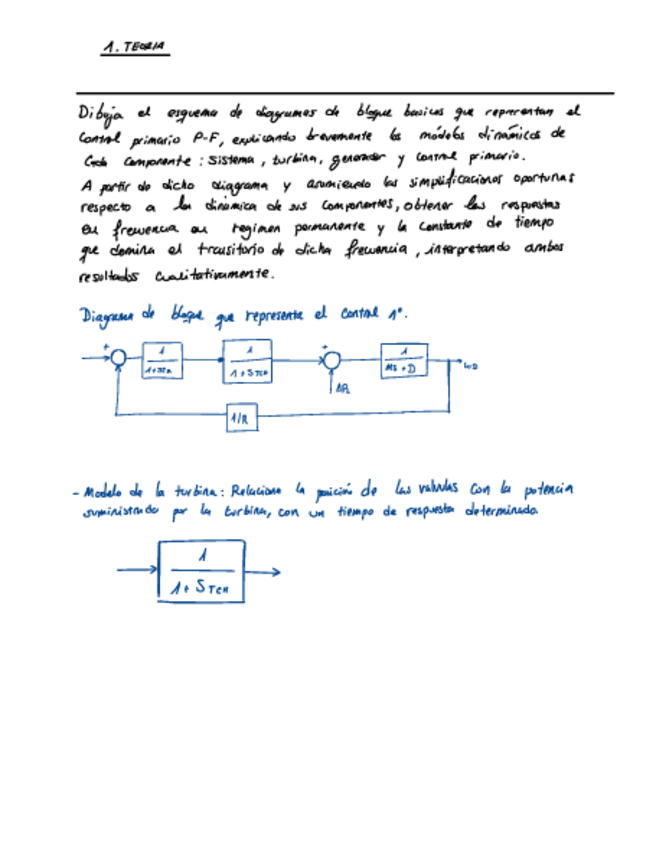 1. TEORIA
Dibuja el esquema de diagramas de bloque basicos que representan el
Control primario P-F, explicando brevemente los modelos dinámicos de
Cada componente : sistema, turbina, generador y control primario.
A partir de dicho diagrama y asumiendo las simplificaciones oportunas
respecto a la dinámica de sus componentes, obtener las respuestas
en frecuencia en regimen permanente y la constante de tiempo
que domina el transitorio de dicha frecuencia, interpretando ambos
resultados cualitativamente.
Diagrama de bloque que representa el Control 1º.
+ 1 1 + 1
1+STCH MS+D
1/R
- Modelo de la turbina: Relaciona la posición de las valvulas con la potencia
suministrada por la turbina, con un tiempo de respuesta determinado.
1
1+STCH